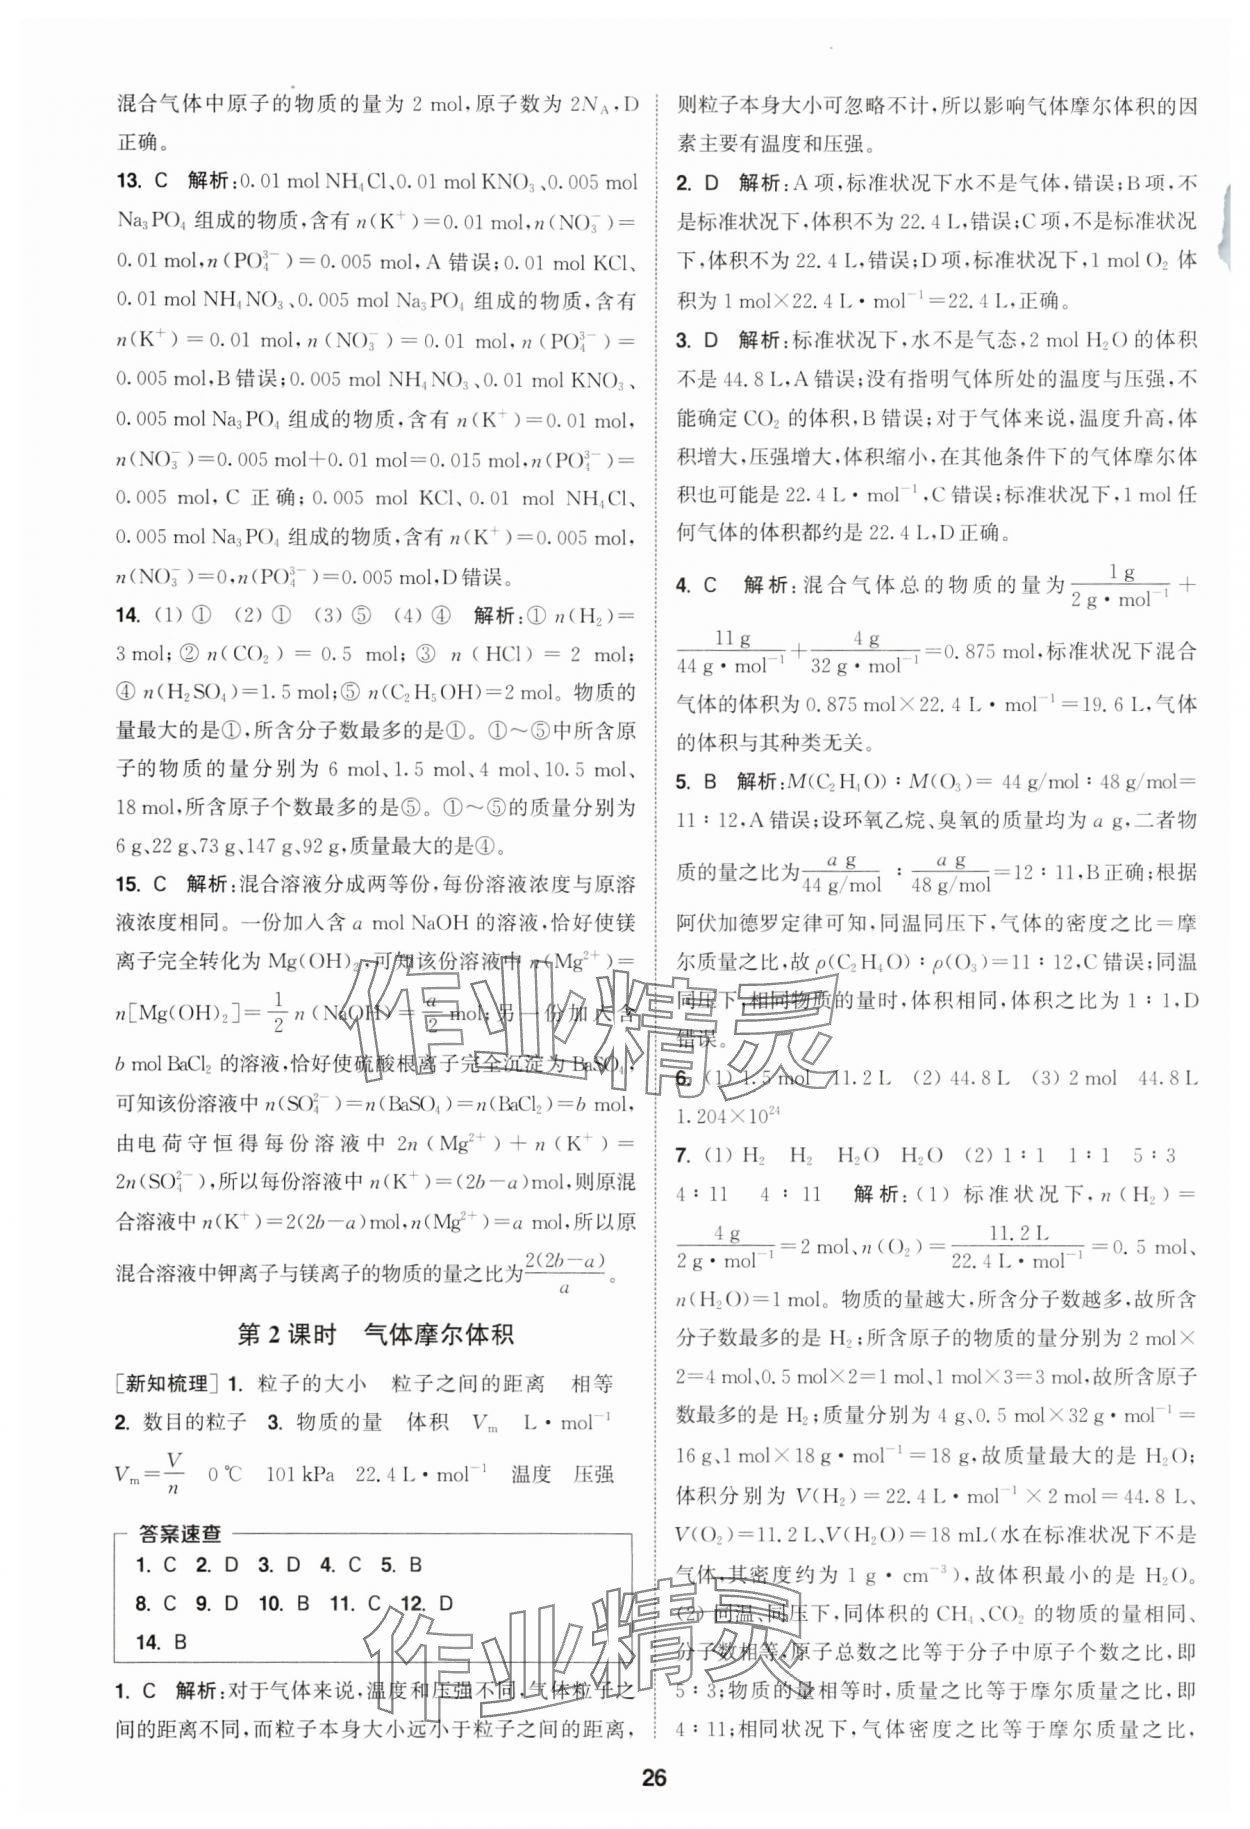 混合气体中原子的物质的量为 2 mol,原子数为 2N_A,D
正确。
13. C 解析:0.01 mol NH₄Cl、0.01 mol KNO₃、0.005 mol
Na₃PO₄ 组成的物质,含有 n(K⁺)=0.01 mol,n(NO₃⁻)=
0.01 mol,n(PO₄³⁻)=0.005 mol,A 错误;0.01 mol KCl、
0.01 mol NH₄NO₃、0.005 mol Na₃PO₄ 组成的物质,含有
n(K⁺)=0.01 mol,n(NO₃⁻)=0.01 mol,n(PO₄³⁻)=
0.005 mol,B 错误;0.005 mol NH₄NO₃、0.01 mol KNO₃、
0.005 mol Na₃PO₄ 组成的物质,含有 n(K⁺)=0.01 mol,
n(NO₃⁻)=0.005 mol+0.01 mol=0.015 mol,n(PO₄³⁻)=
0.005 mol,C 正确;0.005 mol KCl、0.01 mol NH₄Cl、
0.005 mol Na₃PO₄ 组成的物质,含有 n(K⁺)=0.005 mol,
n(NO₃⁻)=0,n(PO₄³⁻)=0.005 mol,D 错误。
14. (1) ① (2) ① (3) ⑤ (4) ④ 解析:① n(H₂)=
3 mol;② n(CO₂)=0.5 mol;③ n(HCl)=2 mol;
④ n(H₂SO₄)=1.5 mol;⑤ n(C₂H₅OH)=2 mol。物质的
量最大的是①,所含分子数最多的是①。①～⑤中所含原
子的物质的量分别为 6 mol、1.5 mol、4 mol、10.5 mol、
18 mol,所含原子个数最多的是⑤。①～⑤的质量分别为
6 g、22 g、73 g、147 g、92 g,质量最大的是④。
15. C 解析:混合溶液分成两等份,每份溶液浓度与原溶
液浓度相同。一份加入含 a mol NaOH 的溶液,恰好使镁
离子完全转化为 Mg(OH)₂,可知该份溶液中 n(Mg²⁺)=
n[Mg(OH)₂]=1/2 n(NaOH)=a/2 mol;另一份加入含
b mol BaCl₂ 的溶液,恰好使硫酸根离子完全沉淀为 BaSO₄,
可知该份溶液中 n(SO₄²⁻)=n(BaSO₄)=n(BaCl₂)=b mol,
由电荷守恒得每份溶液中 2n(Mg²⁺)+n(K⁺)=
2n(SO₄²⁻),所以每份溶液中 n(K⁺)=(2b-a)mol,则原混
合溶液中 n(K⁺)=2(2b-a)mol,n(Mg²⁺)=a mol,所以原
混合溶液中钾离子与镁离子的物质的量之比为 2(2b-a)/a。
第 2 课时 气体摩尔体积
[新知梳理] 1. 粒子的大小 粒子之间的距离 相等
2. 数目的粒子 3. 物质的量 体积 Vₘ L·mol⁻¹
Vₘ=V/n 0 ℃ 101 kPa 22.4 L·mol⁻¹ 温度 压强
答案速查
1. C 2. D 3. D 4. C 5. B
8. C 9. D 10. B 11. C 12. D
14. B
1. C 解析:对于气体来说,温度和压强不同,气体粒子之
间的距离不同,而粒子本身大小远小于粒子之间的距离,
则粒子本身大小可忽略不计,所以影响气体摩尔体积的因
素主要有温度和压强。
2. D 解析:A 项,标准状况下水不是气体,错误;B 项,不
是标准状况下,体积不为 22.4 L,错误;C 项,不是标准状况
下,体积不为 22.4 L,错误;D 项,标准状况下,1 mol O₂ 体
积为 1 mol×22.4 L·mol⁻¹=22.4 L,正确。
3. D 解析:标准状况下,水不是气态,2 mol H₂O 的体积
不是 44.8 L,A 错误;没有指明气体所处的温度与压强,不
能确定 CO₂ 的体积,B 错误;对于气体来说,温度升高,体
积增大,压强增大,体积缩小,在其他条件下的气体摩尔体
积也可能是 22.4 L·mol⁻¹,C 错误;标准状况下,1 mol 任
何气体的体积都约是 22.4 L,D 正确。
4. C 解析:混合气体总的物质的量为 1 g/(2 g·mol⁻¹)+
11 g/(44 g·mol⁻¹)+4 g/(32 g·mol⁻¹)=0.875 mol,标准状况下混合
气体的体积为 0.875 mol×22.4 L·mol⁻¹=19.6 L,气体
的体积与其种类无关。
5. B 解析:M(C₂H₄O)∶M(O₃)=44 g/mol∶48 g/mol=
11∶12,A 错误;设环氧乙烷、臭氧的质量均为 a g,二者物
质的量之比为 a g/(44 g/mol)∶a g/(48 g/mol)=12∶11,B 正确;根据
阿伏加德罗定律可知,同温同压下,气体的密度之比=摩
尔质量之比,故 ρ(C₂H₄O)∶ρ(O₃)=11∶12,C 错误;同温
同压下,相同物质的量时,体积相同,体积之比为 1∶1,D
错误。
6. (1) 1.5 mol 11.2 L (2) 44.8 L (3) 2 mol 44.8 L
1.204×10²⁴
7. (1) H₂ H₂ H₂O H₂O (2) 1∶1 1∶1 5∶3
4∶11 4∶11 解析:(1) 标准状况下,n(H₂)=
4 g/(2 g·mol⁻¹)=2 mol、n(O₂)=11.2 L/(22.4 L·mol⁻¹)=0.5 mol、
n(H₂O)=1 mol。物质的量越大,所含分子数越多,故所含
分子数最多的是 H₂;所含原子的物质的量分别为 2 mol×
2=4 mol、0.5 mol×2=1 mol、1 mol×3=3 mol,故所含原子
数最多的是 H₂;质量分别为 4 g、0.5 mol×32 g·mol⁻¹=
16 g、1 mol×18 g·mol⁻¹=18 g,故质量最大的是 H₂O;
体积分别为 V(H₂)=22.4 L·mol⁻¹×2 mol=44.8 L、
V(O₂)=11.2 L、V(H₂O)=18 mL(水在标准状况下不是
气体,其密度约为 1 g·cm⁻³),故体积最小的是 H₂O。
(2) 同温、同压下,同体积的 CH₄、CO₂ 的物质的量相同、
分子数相等,原子总数之比等于分子中原子个数之比,即
5∶3;物质的量相等时,质量之比等于摩尔质量之比,即
4∶11;相同状况下,气体密度之比等于摩尔质量之比,
26
作业精灵
作业精灵